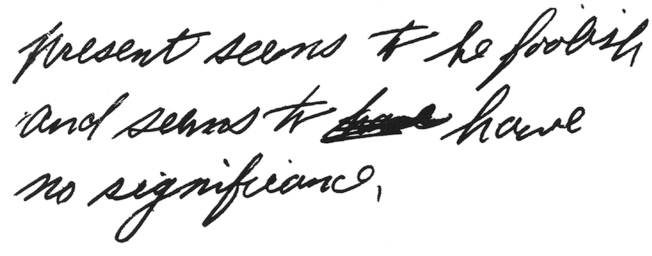 present seems to be foolish
and seems to have
no significance,